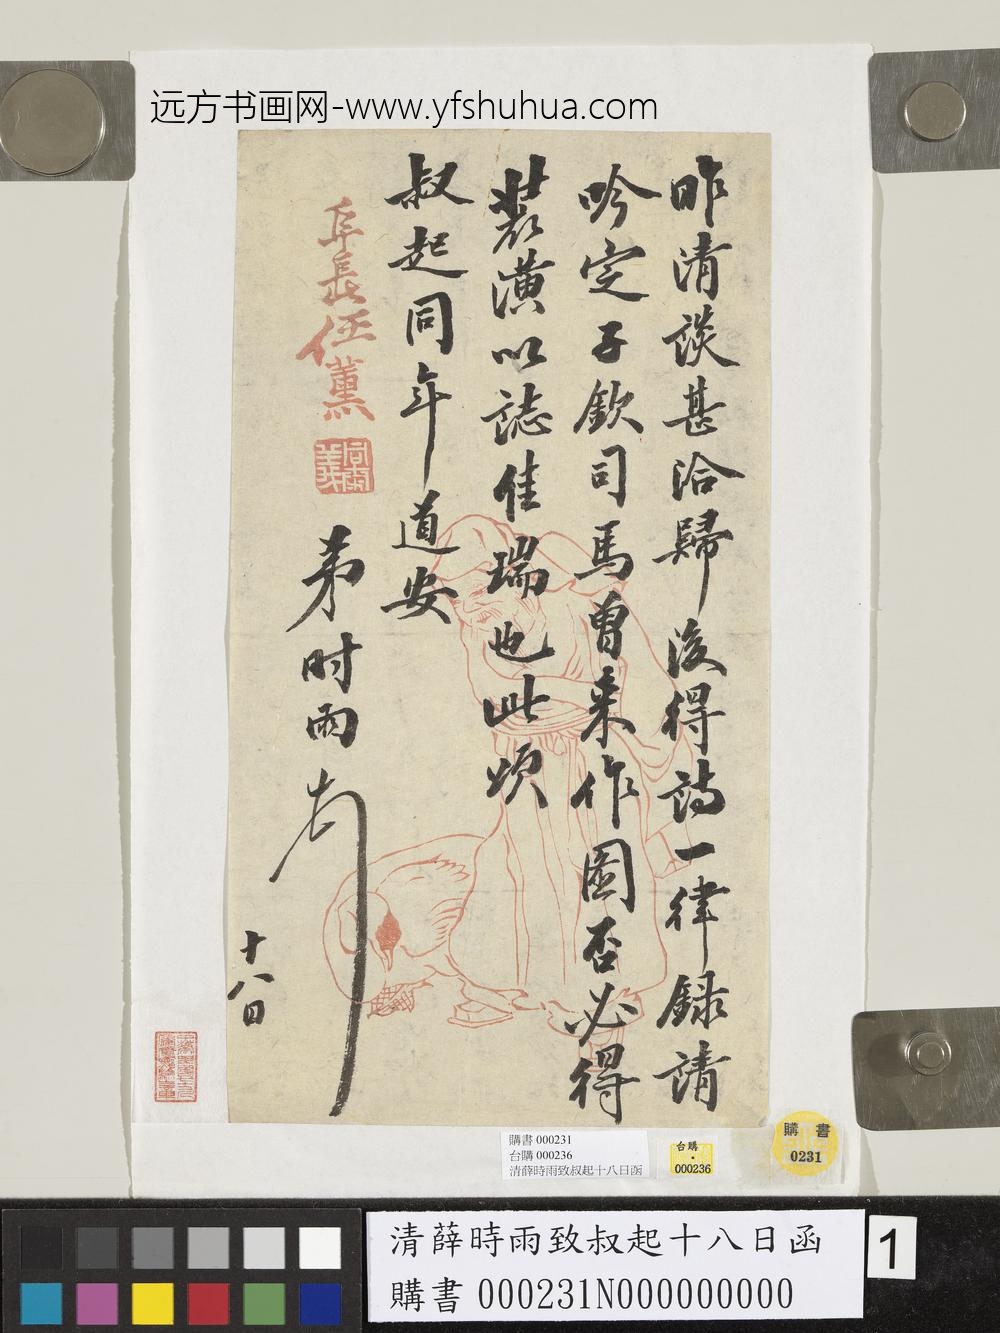 远方书画网-www.yfshuhua.com
昨清談甚洽歸後得詩一律錄請
吟定子欽司馬曾来作圖否必得
裝潢以誌佳瑞也此頌
叔起同年道安
弟时雨
十八日
阜長任薰
購書 000231
台購 000236
清薛時雨致叔起十八日函
台購
·
000236
購書
0231
清薛時雨致叔起十八日函
購書 000231N000000000
1